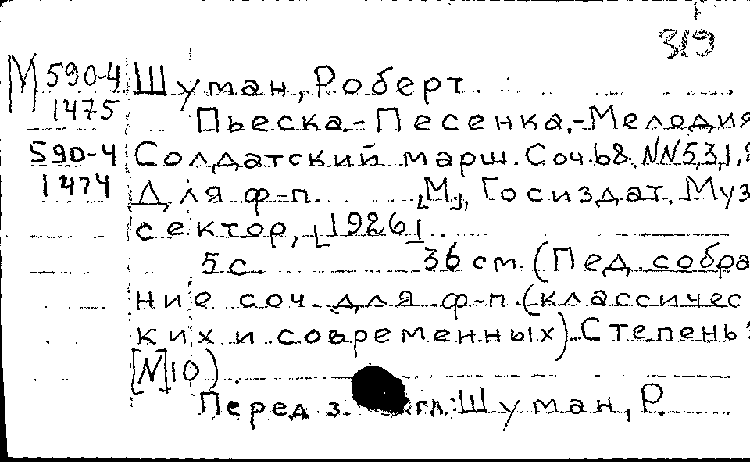 319
М 590-4 Шуман, Роберт
1475 Пьеска.-Песенка.-Мелодия
590-4 Солдатский марш. Соч. 68, NN5,3,1,2
1474 Для ф-п. [М], Госиздат. Муз
сектор, [1926]
5 с. 36 см. (Пед. собра
ние соч. для ф-п. (классичес
ких и современных). Степень
[N]10)
Перед з. гл: Шуман, Р.